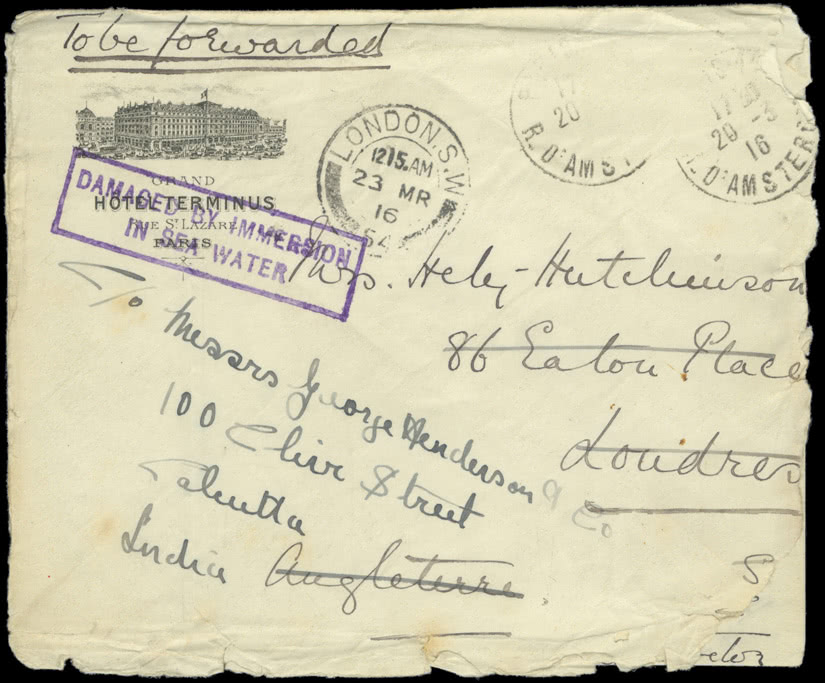 To be forwarded
GRAND
HÔTEL TERMINUS
RUE ST LAZARE
PARIS
DAMAGED BY IMMERSION
IN SEA WATER
LONDON. S.W
12 15. AM
23 MR
16
54
17
20
R. D'AMST
17 30
20 - 3
16
R. D'AMSTERD
Mrs. Hely-Hutchinson
86 Eaton Place
Londres
Angleterre.
S.
To Messrs George Henderson & Co
100 Clive Street
Calcutta
India